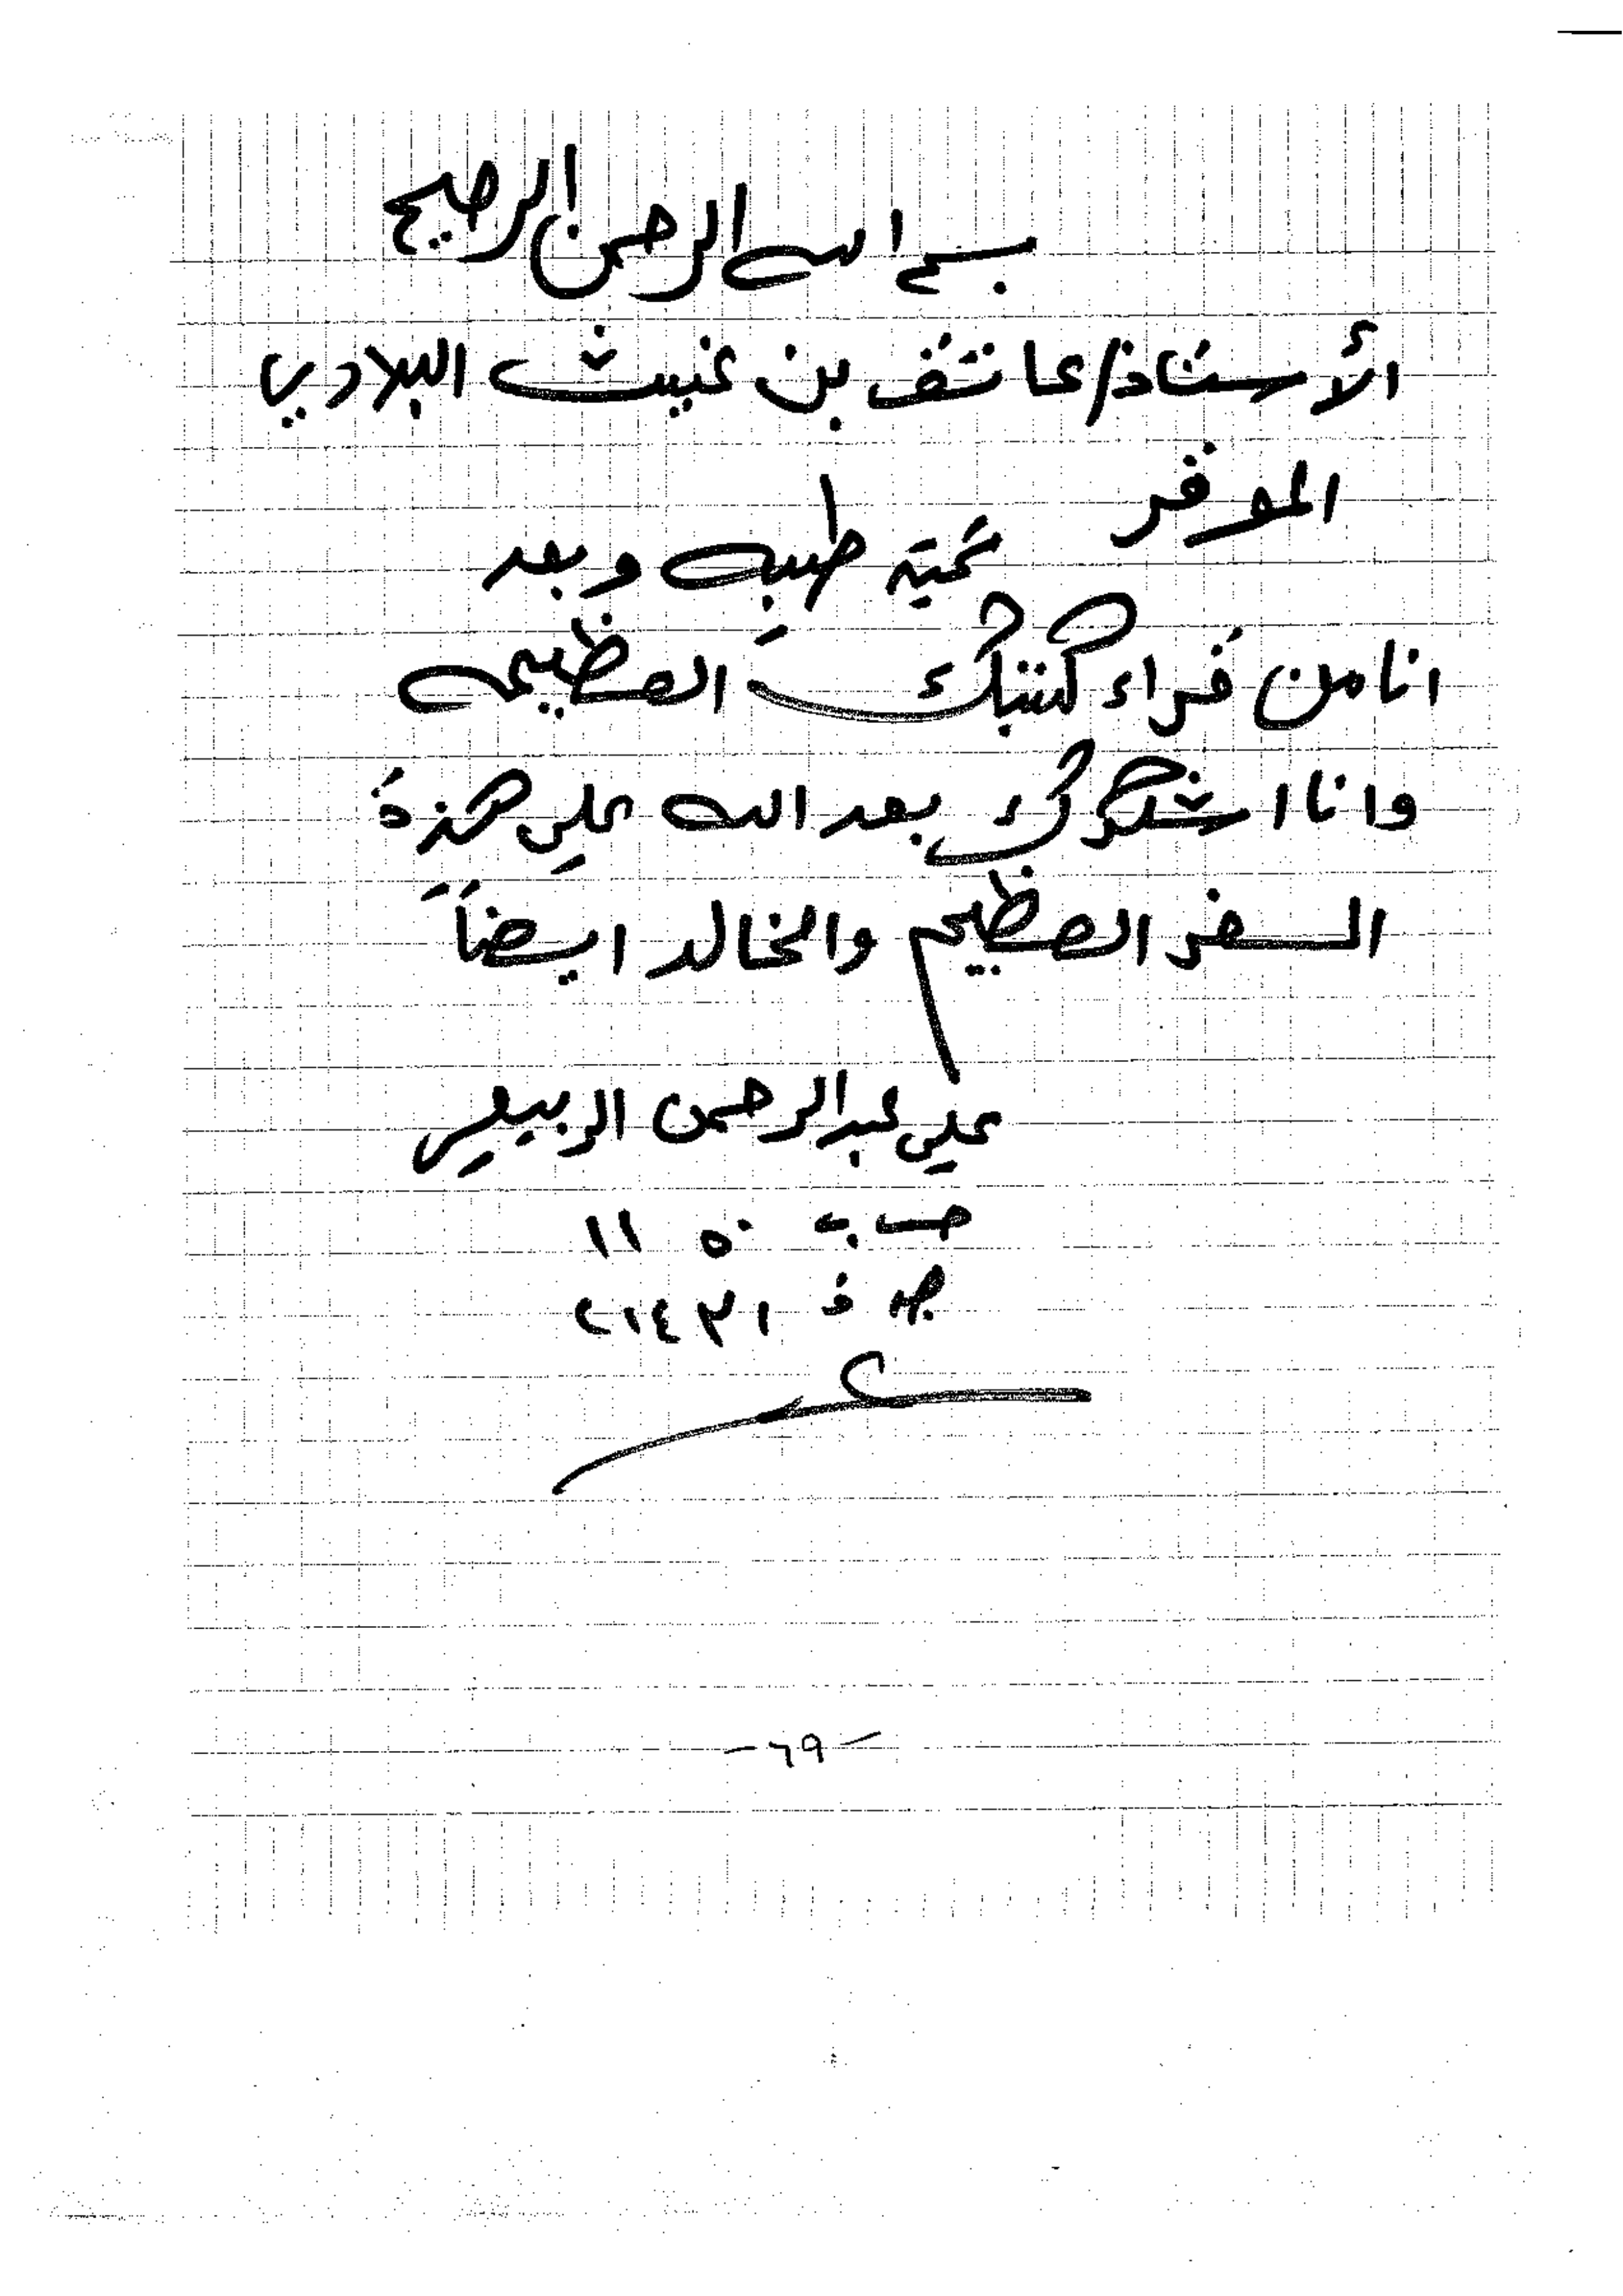 بسم الله الرحمن الرحيم
الأستاذ/عاتق بن غيث البلادي
الموقر
تحية طيبه وبعد
انا من قراء كتبك العظيمه
وانا اشكرك بعد الله على هذة
السفر العظيم والخالد ايضاً
علي عبدالرحمن
ص ب ٥٠ ١١
جدة ٢١٤٣١
-٦٩-